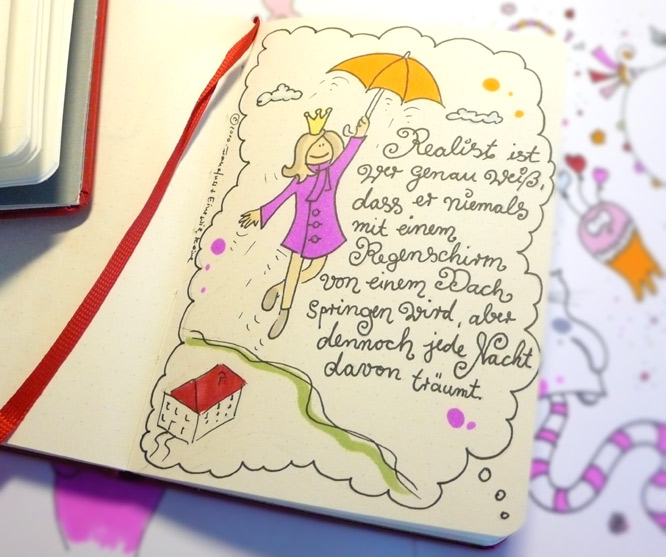 Realist ist
wer genau weiß,
dass er niemals
mit einem
Regenschirm
von einem Dach
springen wird, aber
dennoch jede Nacht
davon träumt.